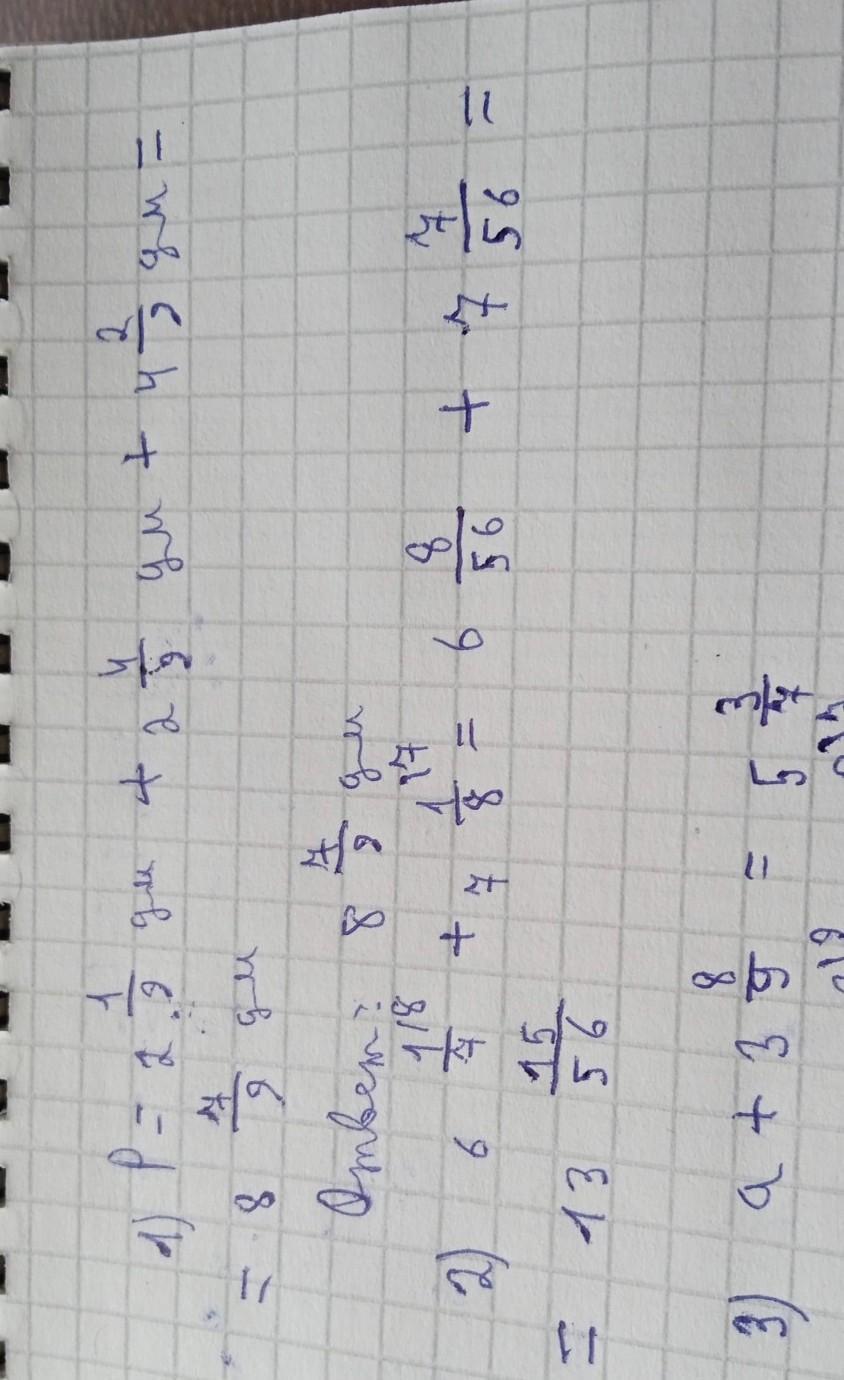 1) P = 2 1/9 дм + 2 4/9 дм + 4 2/9 дм =
= 8 7/9 дм
Ответ: 8 7/9 дм
2) 6 1/7 |8 + 7 1/8 |7 = 6 8/56 + 7 7/56 =
= 13 15/56
3) a + 3 8/9 = 5 3/7